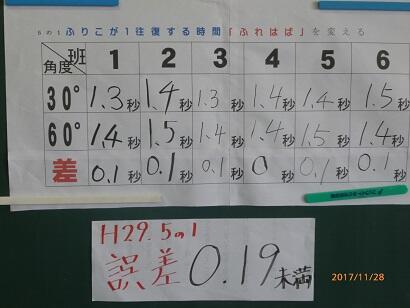 5の1ふりこが1往復する時間「ふれはば」を変える
班 角度 1 2 3 4 5 6
30° 1.3秒 1.4秒 1.3秒 1.4秒 1.4秒 1.5秒
60° 1.4秒 1.5秒 1.4秒 1.4秒 1.5秒 1.4秒
差 0.1秒 0.1秒 0.1秒 0秒 0.1秒 0.1秒
H29.5の1
誤差0.19未満
2017/11/28